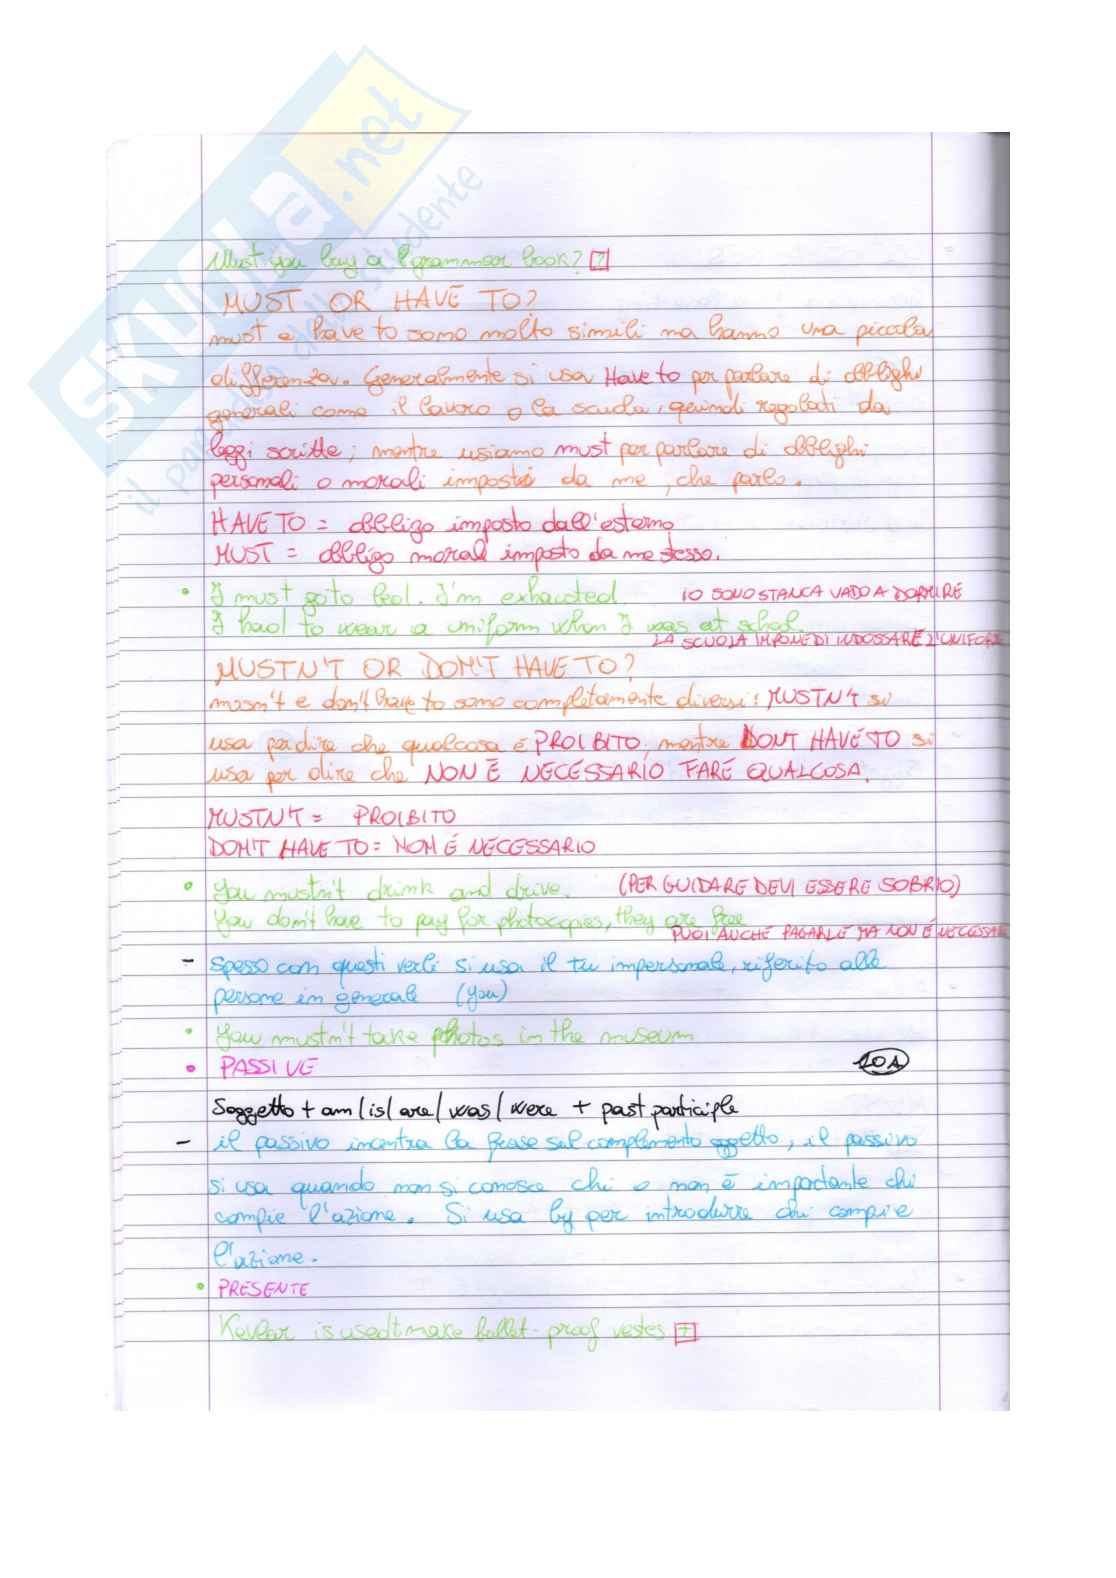 SKUOLA.net
il paradiso dello studente
Must you buy a grammar book? ?
MUST OR HAVE TO?
must e have to sono molto simili ma hanno una piccola
differenza. Generalmente si usa Have to per parlare di obblighi
generali come il lavoro o la scuola, quindi regolati da
leggi scritte; mentre usiamo must per parlare di obblighi
personali o morali imposti da me, che parlo.
HAVE TO = obbligo imposto dall'esterno
MUST = obbligo morale imposto da me stesso.
• I must go to bed. I'm exhausted. IO SONO STANCA VADO A DORMIRE
I had to wear a uniform when I was at school.
LA SCUOLA IMPONE DI INDOSSARE L'UNIFORME
MUSTN'T OR DON'T HAVE TO?
mosn't e don't have to sono completamente diversi: MUSTN'T si
usa per dire che qualcosa è PROIBITO, mentre DONT HAVE TO si
usa per dire che NON È NECESSARIO FARE QUALCOSA.
MUSTN'T = PROIBITO
DON'T HAVE TO = NON É NECESSARIO
• You mustn't drink and drive. (PER GUIDARE DEVI ESSERE SOBRIO)
You don't have to pay for photocopies, they are free
PUOI ANCHE PAGARLE MA NON É NECESSARIO
- Spesso con questi verbi si usa il tu impersonale, riferito alle
persone in generale (you)
• You mustn't take photos in the museum
• PASSIVE 10A
Soggetto + am/is/are/was/were + past participle
- il passivo incentra la frase sul complemento oggetto, il passivo
si usa quando non si conosce chi o non è importante chi
compie l'azione. Si usa by per introdurre chi compie
l'azione.
• PRESENTE
Kevlar is used to make bullet-proof vestes +